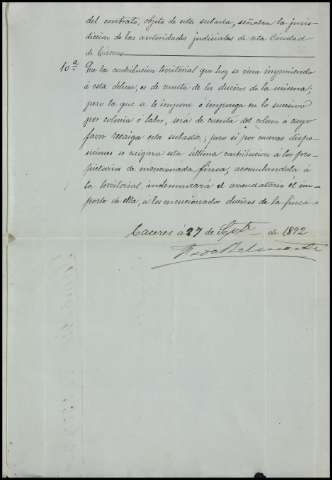 del contrato, objeto de esta subasta, señalan la juris-
diccion de las autoridades judiciales de esta Ciudad
de Cáceres
10ª Que la contribucion territorial que hoy se viene imponiendo
á esta dehesa, es de cuenta de los dueños de la misma;
pero la que se impone é imponga en lo sucesivo
por colonia ó labor, será de cuenta del colono a cuyo
favor recaiga esta subasta; pero si por nuevas dispo-
siciones se exigiera esta última contribucion á los pro-
pietarios de mencionada finca, acumulandola á
la territorial, indemnizará el arrendatario el im-
porte de ella, a los mencionados dueños de la finca.
Caceres á 27 de Sptre de 1892